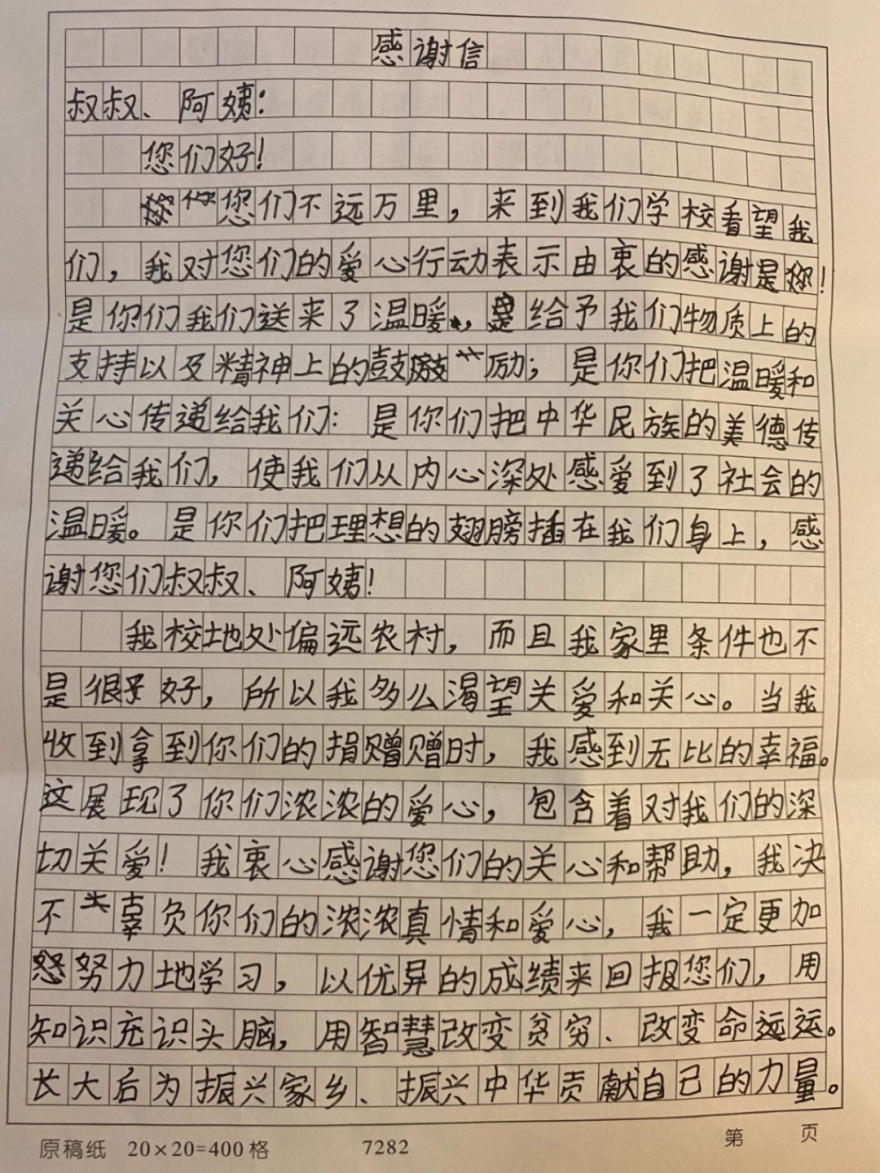 感谢信
叔叔、阿姨：
您们好！
您们不远万里，来到我们学校看望我
们，我对您们的爱心行动表示由衷的感谢是你！
是你们我们送来了温暖，是给予我们物质上的
支持以及精神上的鼓励；是你们把温暖和
关心传递给我们：是你们把中华民族的美德传
递给我们，使我们从内心深处感爱到了社会的
温暖。是你们把理想的翅膀插在我们身上，感
谢您们叔叔、阿姨！
我校地处偏远农村，而且我家里条件也不
是很好，所以我多么渴望关爱和关心。当我
收到拿到你们的捐赠赠时，我感到无比的幸福。
这展现了你们浓浓的爱心，包含着对我们的深
切关爱！我衷心感谢您们的关心和帮助，我决
不辜负你们的浓浓真情和爱心，我一定更加
怒努力地学习，以优异的成绩来回报您们，用
知识充识头脑，用智慧改变贫穷、改变命远运。
长大后为振兴家乡、振兴中华贡献自己的力量。
原稿纸 20×20=400格 7282 第 页